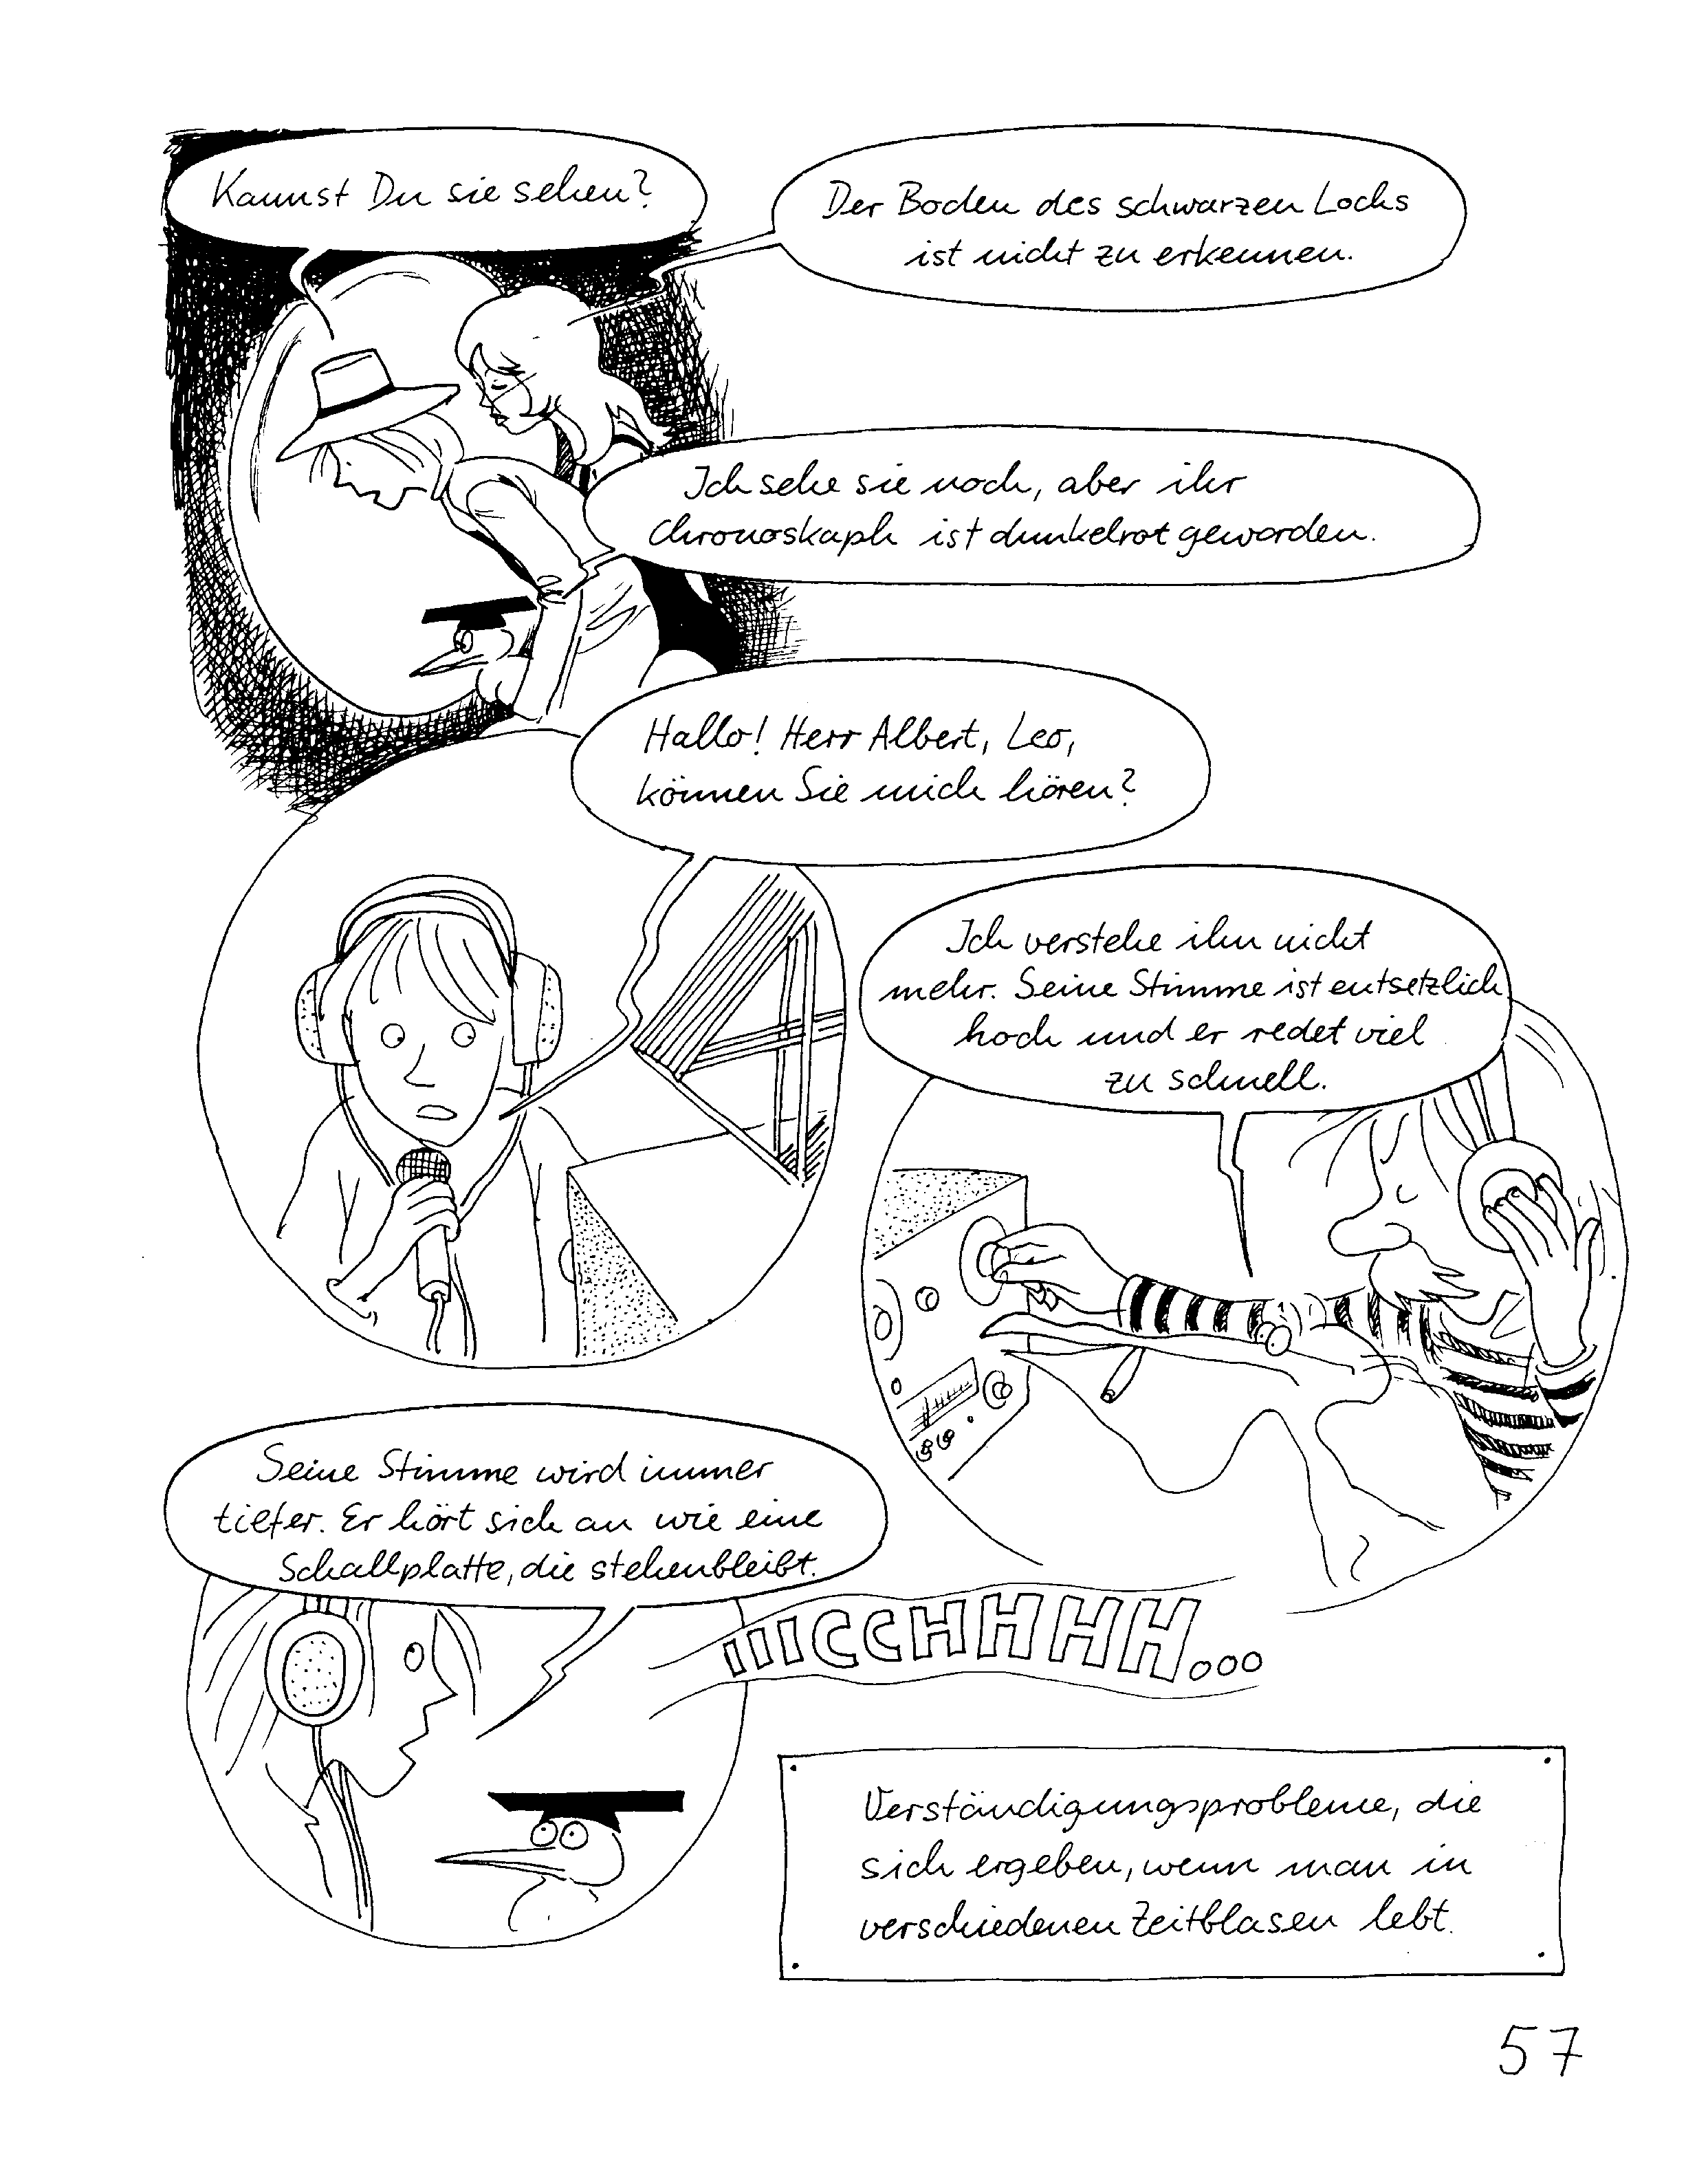 Kannst Du sie sehen?
Der Boden des schwarzen Lochs
ist nicht zu erkennen.
Ich sehe sie noch, aber ihr
Chronoskaph ist dunkelrot geworden.
Hallo! Herr Albert, Leo,
können Sie mich hören?
Ich verstehe ihn nicht
mehr. Seine Stimme ist entsetzlich
hoch und er redet viel
zu schnell.
Seine Stimme wird immer
tiefer. Er hört sich an wie eine
Schallplatte, die stehenbleibt.
IIIICCHHHH...
Verständigungsprobleme, die
sich ergeben, wenn man in
verschiedenen Zeitblasen lebt.
57